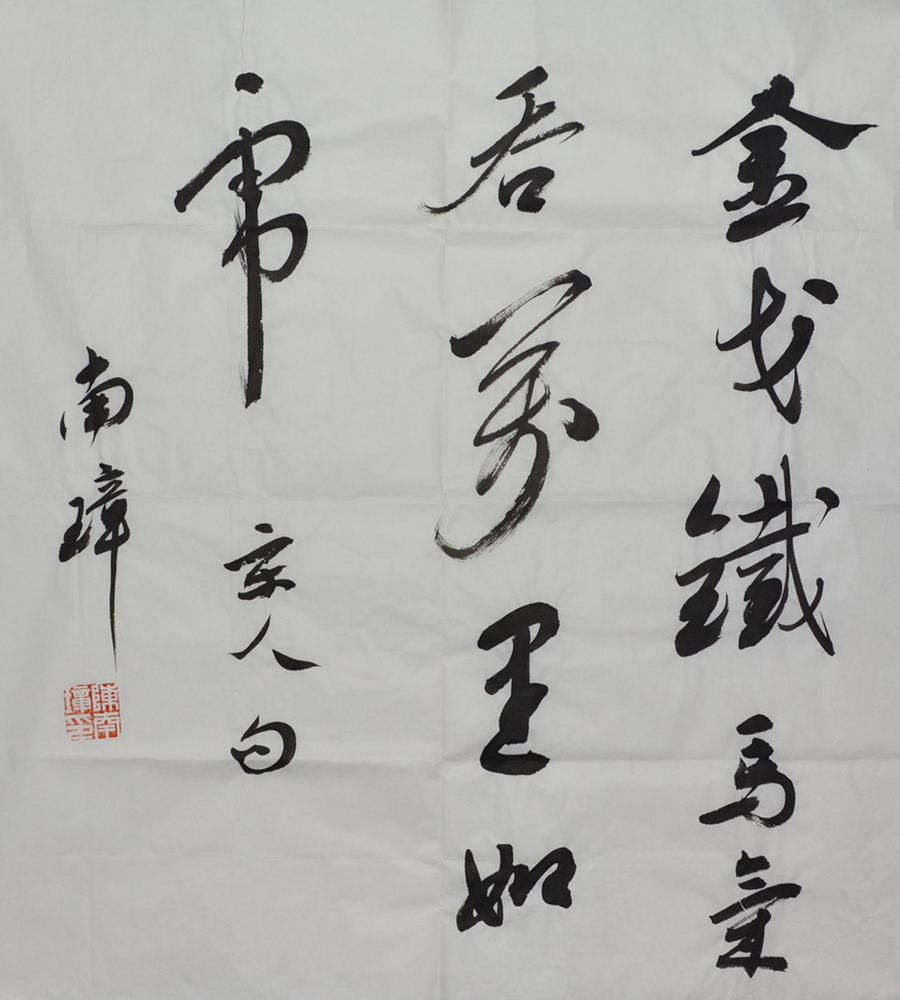 金戈鐵馬氣
吞萬里如
虎 宋人句
南璋
陳南璋印